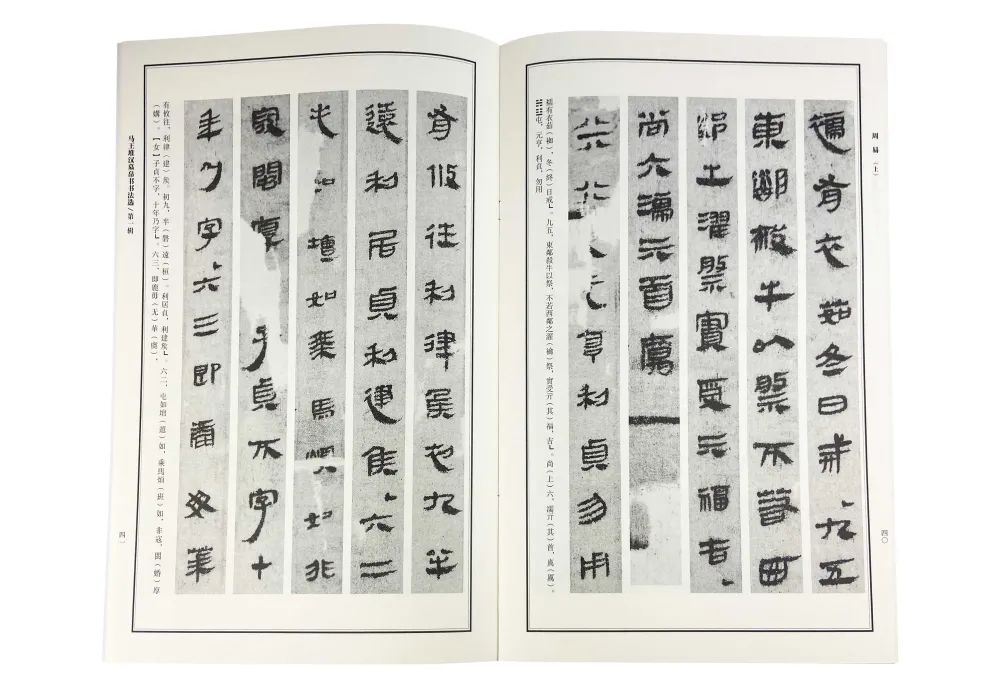 周易（上）
濡有衣茹冬日戒九五
東鄰殺牛以祭不若西
鄰之濯祭實受亓福吉
尚六濡亓首厲
元亨利貞勿用
襦有衣茹（袽），冬（終）日戒乚。九五，東鄰殺牛以祭，不若西鄰之濯（禴）祭，實受亓（其）福，吉乚。尚（上）六，濡亓（其）首，（厲）。
䷂屯，元亨，利貞，勿用
四〇
有攸往利律侯初九半
遠利居貞利建侯六二
屯如壇如乘馬煩如非
寇閩厚子貞不字十
年乃字六三即鹿毋華
有攸往，利律（建）矦。初九，半（磐）遠（桓）。利居貞，利建矦乚。六二，屯如壇（邅）如，乘馬煩（班）如，非寇，閩（婚）厚
（媾）。【女】子貞不字，十年乃字乚。六三，即鹿毋（无）華（虞），
马王堆汉墓帛书书法选/第一辑
四一